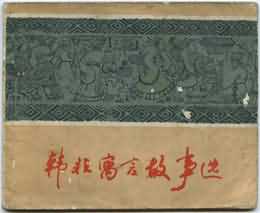 韩非寓言故事选